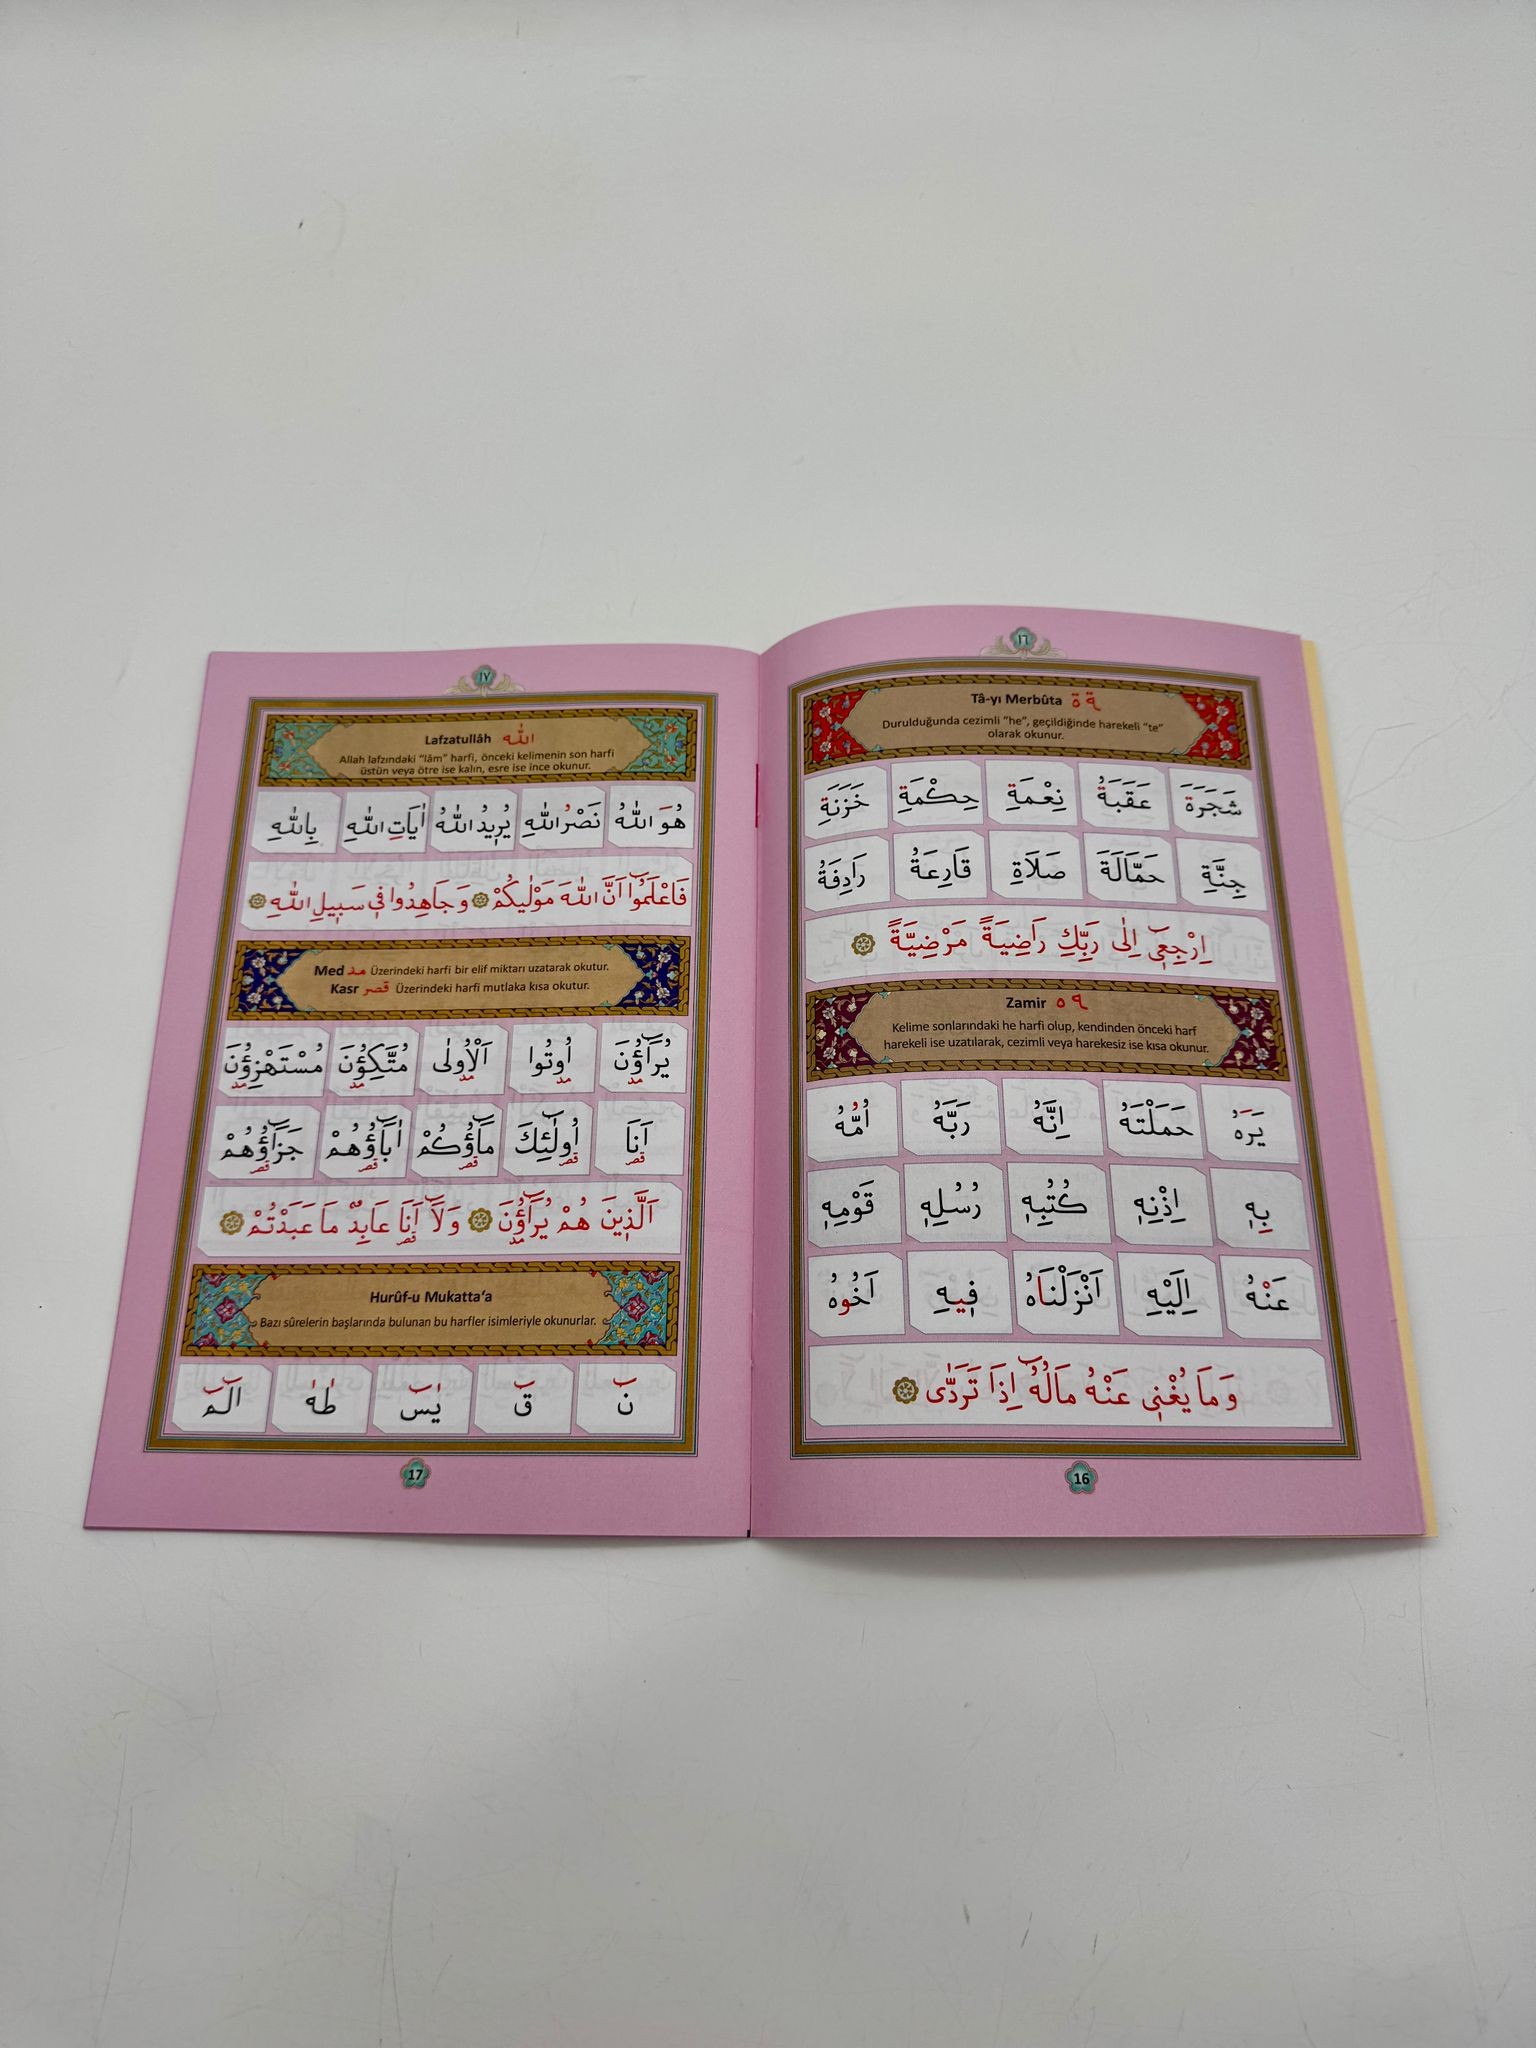 ١٦
Tâ-yı Merbûta ـة ة
Durulduğunda cezimli “he”, geçildiğinde harekeli “te”
olarak okunur.
شَجَرَةَ عَقَبَةُ نِعْمَةِ حِكْمَةِ خَزَنَةِ
جِنَّةِ حَمَّالَةَ صَلَاةِ قَارِعَةُ رَادِفَةُ
اِرْجِعٖٓي اِلٰى رَبِّكِ رَاضِيَةً مَرْضِيَّةً
Zamir ـه ه
Kelime sonlarındaki he harfi olup, kendinden önceki harf
harekeli ise uzatılarak, cezimli veya harekesiz ise kısa okunur.
يَرَهُ حَمَلَتْهُ اِنَّهُ رَبَّهُ اُمُّهُ
بِهٖ اِذْنِهٖ كُتُبِهٖ رُسُلِهٖ قَوْمِهٖ
عَنْهُ اِلَيْهِ اَنْزَلْنَاهُ فٖيهِ اَخُوهُ
وَمَا يُغْنٖي عَنْهُ مَالُهُٓ اِذَا تَرَدّٰى
16
١٧
Lafzatullâh اللّٰه
Allah lafzındaki “lâm” harfi, önceki kelimenin son harfi
üstün veya ötre ise kalın, esre ise ince okunur.
هُوَ اللّٰهُ نَصْرُ اللّٰهِ يُرٖيدُ اللّٰهُ اٰيَاتِ اللّٰهِ بِاللّٰهِ
فَاعْلَمُٓوا اَنَّ اللّٰهَ مَوْلٰيكُمْ وَجَاهِدُوا فٖي سَبٖيلِ اللّٰهِ
Med مد Üzerindeki harfi bir elif miktarı uzatarak okutur.
Kasr قصر Üzerindeki harfi mutlaka kısa okutur.
يُرَٓاؤُنَ اُوتُوا اَلْاُولٰى مُتَّكِؤُنَ مُسْتَهْزِؤُنَ
مد مد مد مد مد
اَنَا اُولٰٓئِكَ مَٓاؤُكُمْ اٰبَٓاؤُهُمْ جَزَٓاؤُهُمْ
قصر قصر قصر قصر قصر
اَلَّذٖينَ هُمْ يُرَٓاؤُنَ وَلَٓا اَنَا عَابِدٌ مَا عَبَدْتُمْ
مد قصر
Hurûf-u Mukatta‘a
Bazı sûrelerin başlarında bulunan bu harfler isimleriyle okunurlar.
نٓ قٓ يٰسٓ طٰهٰ الٓمٓ
17